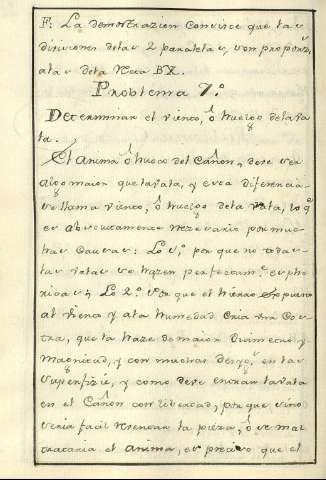 F: La demostrazion convince que las
divisiones delas 2 paralelas, son proporz.s
alas dela Reca BX.
Problema 7.º
Determinar el viento, ó huelgo dela va
la.
El anima ó hueco del Cañon, deve ser
algo maior que la vala, y esta diferencia
se llama viento, ó huelgo dela vala, lo q.e
es absolutamente nezesario por mu
chas Causas: Lo 1.º por que no todas
las valas se hazen perfectam.te esphe
ricas; Lo 2.º por que el hierro expuesto
al viento y ala humedad cria una Cos
tra, que la haze de maior Diametro y
Magnitud, y con muchas desyg.s en la
superfizie, y como deve entrar la vala
en el Cañon con libertad, porque sino
seria facil rebentar la pieza, ó se mal
trataria el anima, es preciso que el